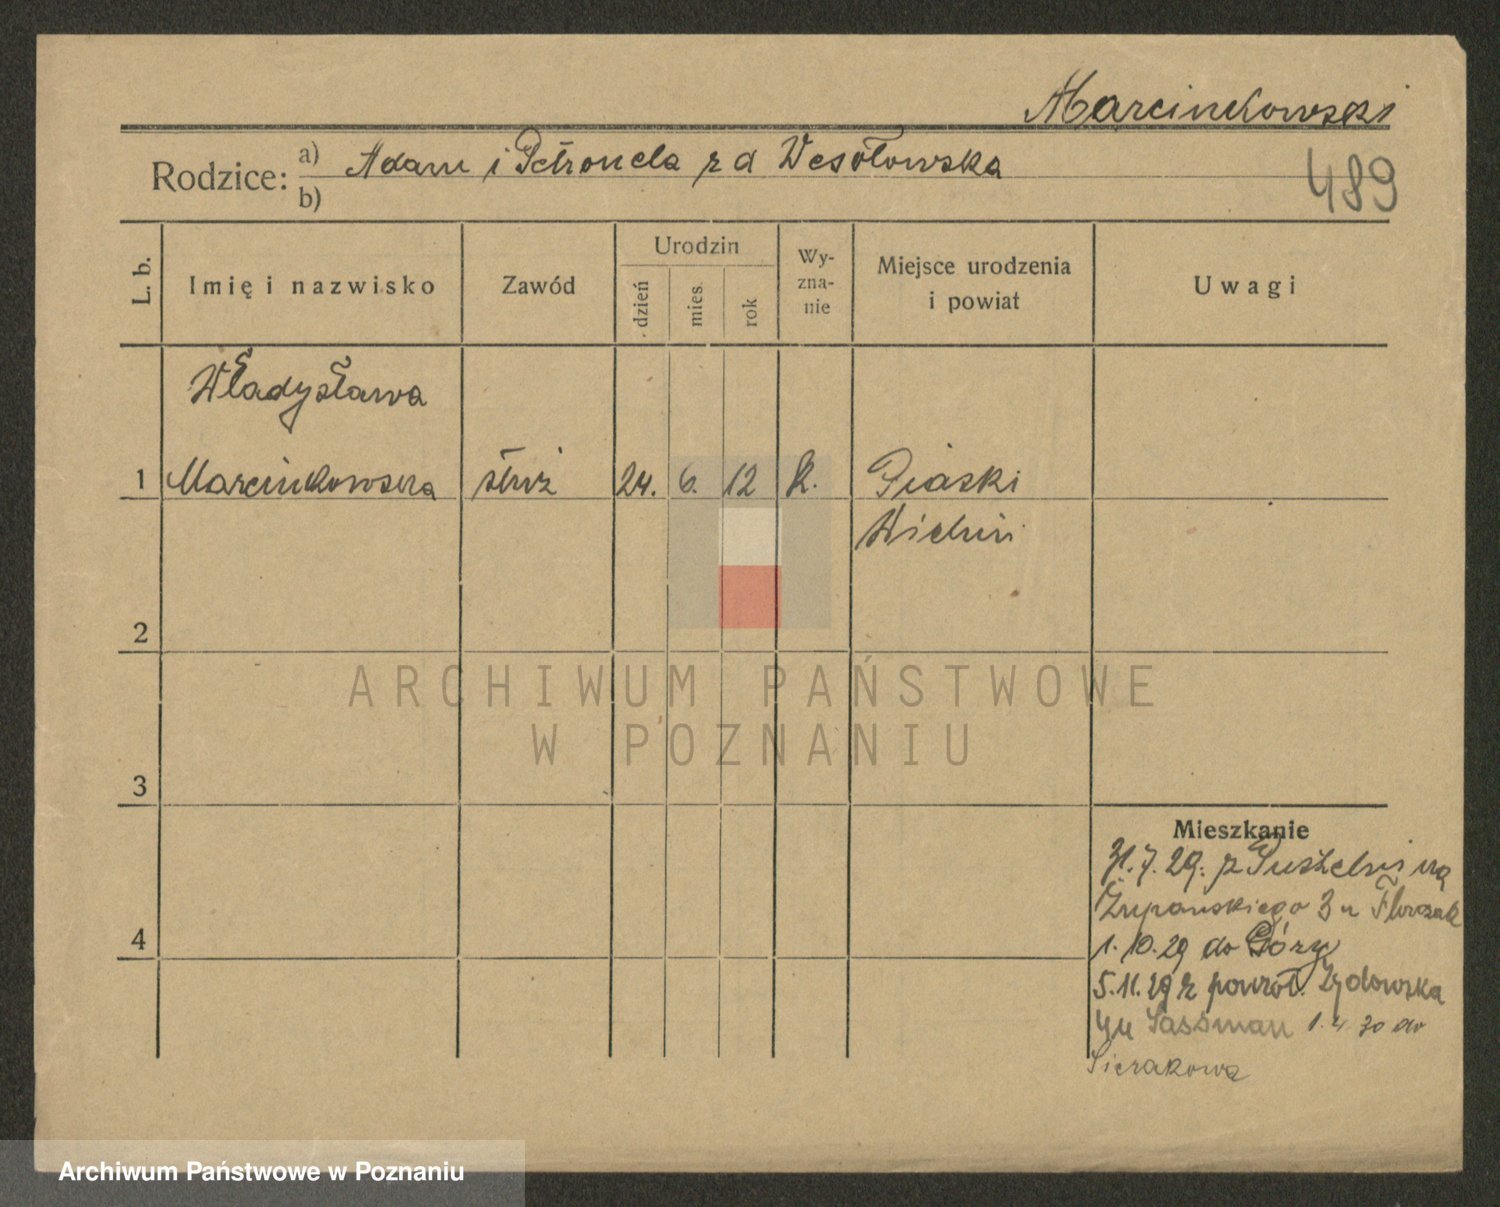 Marcinkowski
Rodzice: a) Adam i Petronela z d Wesołowska
b)
489
L. b.
Imię i nazwisko
Zawód
Urodzin
dzień
mies.
rok
Wy-
zna-
nie
Miejsce urodzenia
i powiat
Uwagi
Władysława
1 Marcinkowska służ 24. 6. 12 k. Piaski
2
3
4
Mieszkanie
31.7.29. z na
Żupańskiego 3 u
1.10.29 do Góry
5.11.29 z powrót. Żydowska
4 u Sassman 1.4 30 do
Sierakowa
ARCHIWUM PAŃSTWOWE
W POZNANIU
Archiwum Państwowe w Poznaniu